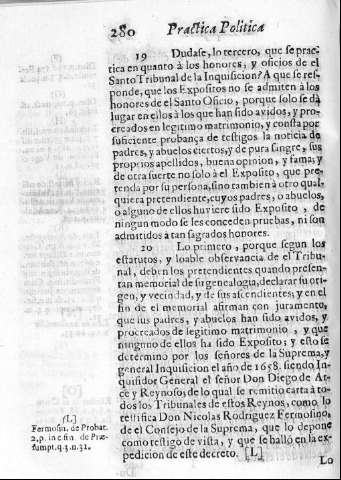 280 Practica Politica
19 Dudase, lo tercero, que se prac-
tica en quanto à los honores, y oficios de el
Santo Tribunal de la Inquisicion? A que se res-
ponde, que los Expositos no se admiten à los
honores de el Santo Oficio, porque solo se dà
lugar en ellos à los que han sido avidos, y pro-
creados en legitimo matrimonio, y consta por
suficiente probança de testigos la noticia de
padres, y abuelos ciertos, y de pura sangre, sus
proprios apellidos, buena opinion, y fama; y
de otra suerte no solo à el Exposito, que pre-
tenda por su persona, sino tambien à otro qual-
quiera pretendiente, cuyos padres, o abuelos,
o alguno de ellos huviere sido Exposito, de
ningun modo se les conceden pruebas, ni son
admitidos à tan sagrados honores.
20 Lo primero, porque segun los
estatutos, y loable observancia de el Tribu-
nal, deben los pretendientes quando presen-
tan memorial de su genealogia, declarar su ori-
gen, y vecindad, y de sus ascendientes; y en el
fin de el memorial afirman con juramento,
que sus padres, y abuelos han sido avidos, y
procreados de legitimo matrimonio, y que
ninguno de ellos ha sido Exposito; y esto se
determinò por los señores de la Suprema, y
general Inquisicion el año de 1658. siendo In-
quisidor General el señor Don Diego de Ar-
ce y Reynoso, de lo qual se remitiò carta à to-
dos los Tribunales de estos Reynos, como lo
testifica Don Nicolas Rodriguez Fermosino,
de el Consejo de la Suprema, que lo depone
como testigo de vista, y que se hallò en la ex-
pedicion de este decreto. [L]
Lo
(L)
Fermosin. de Probat.
2. p. in c. fin. de Præ-
sumpt. q. 3. n. 31.